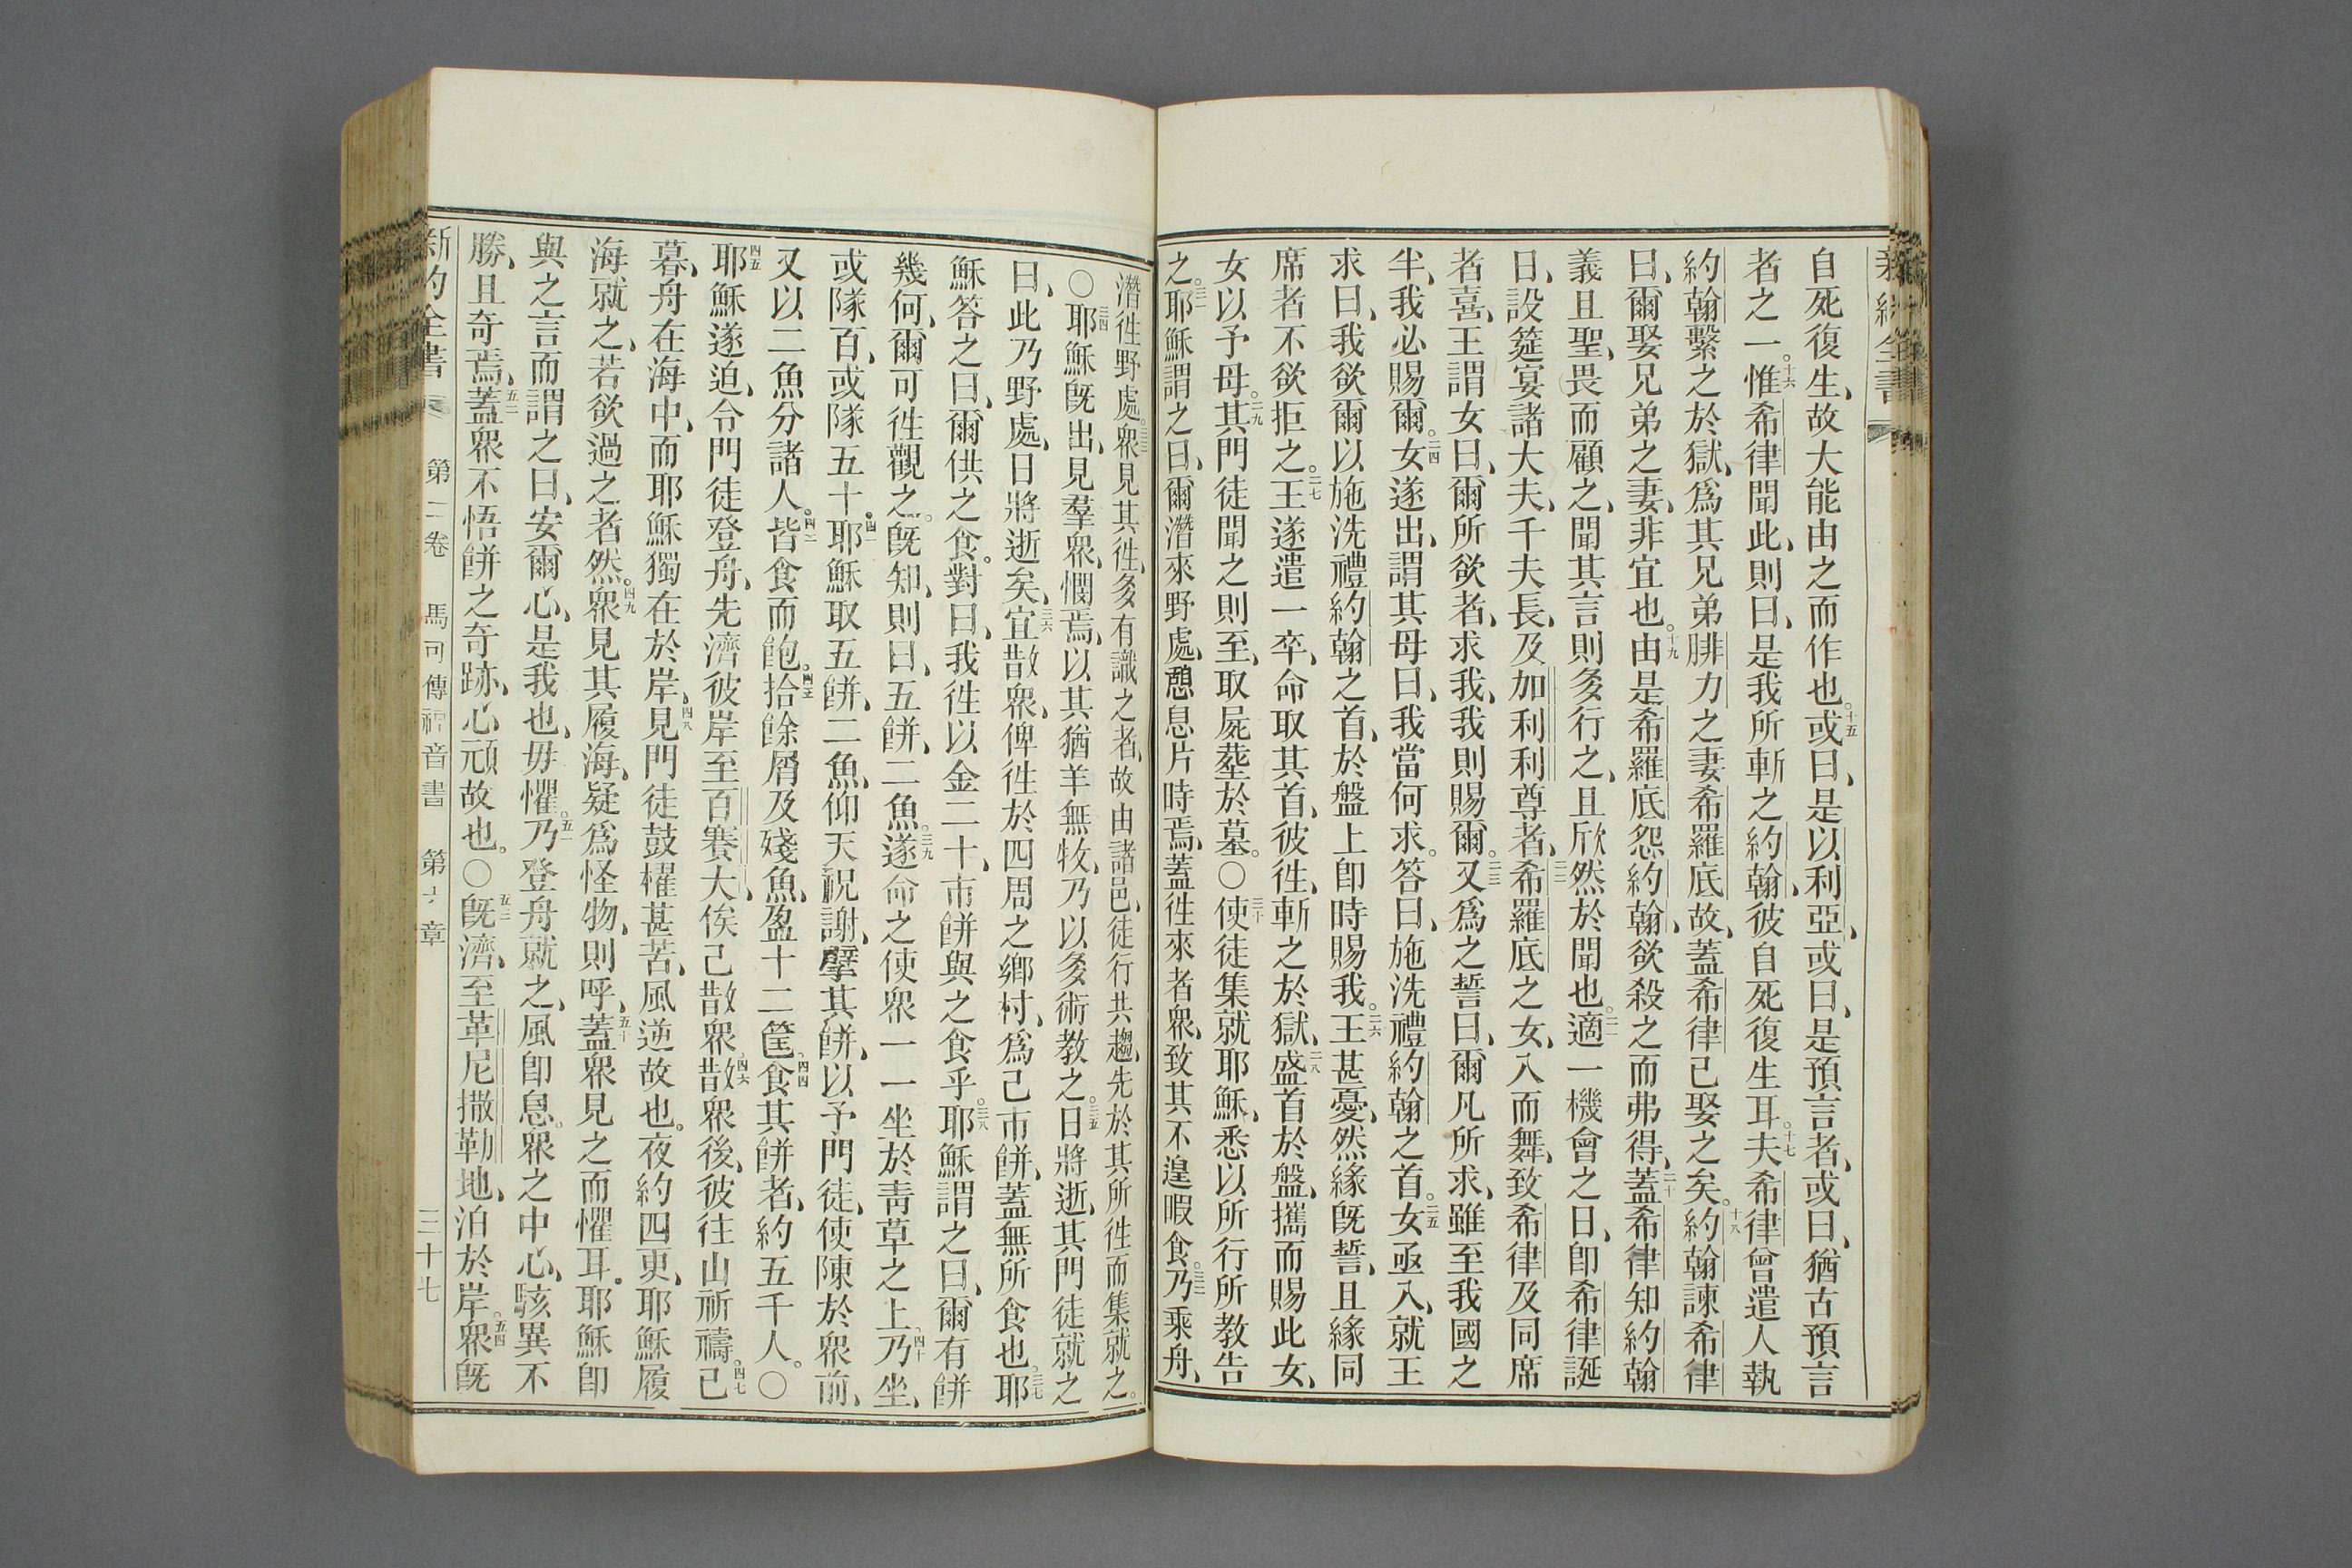 自死復生、故大能由之而作也。十五或曰、是以利亞、或曰、是預言者、或曰、猶古預言
者之一。十六惟希律聞此、則曰、是我所斬之約翰、彼自死復生耳。十七夫希律曾遣人執
約翰繫之於獄、爲其兄弟腓力之妻希羅底故、蓋希律己娶之矣。十八約翰諫希律
曰、爾娶兄弟之妻、非宜也。十九由是希羅底怨約翰、欲殺之而弗得、二十蓋希律知約翰
義且聖、畏而顧之、聞其言則多行之、且欣然於聞也。二一適一機會之日、卽希律誕
日、設筵宴諸大夫、千夫長、及加利利尊者、二二希羅底之女、入而舞、致希律及同席
者喜、王謂女曰、爾所欲者、求我、我則賜爾。二三又爲之誓曰、爾凡所求、雖至我國之
半、我必賜爾。二四女遂出、謂其母曰、我當何求。答曰、施洗禮約翰之首。二五女亟入、就王
求曰、我欲爾以施洗禮約翰之首、於盤上卽時賜我。二六王甚憂、然緣旣誓、且緣同
席者不欲拒之。二七王遂遣一卒、命取其首、彼徃、斬之於獄、二八盛首於盤、攜而賜此女、
女以予母。二九其門徒聞之則至、取屍塟於墓。〇三十使徒集就耶穌、悉以所行所教告
之。三一耶穌謂之曰、爾潛來野處、憩息片時焉、蓋徃來者衆、致其不遑暇食。三二乃乘舟、
潛徃野處。三三衆見其徃、多有識之者、故由諸邑、徒行共趨、先於其所徃而集就之。
〇三四耶穌旣出、見羣衆、憫焉、以其猶羊無牧、乃以多術教之。三五日將逝、其門徒就之
曰、此乃野處、日將逝矣、三六宜散衆、俾徃於四周之鄉村、爲己市餅、蓋無所食也。三七耶
穌答之曰、爾供之食。對曰、我徃以金二十、市餅與之食乎。三八耶穌謂之曰、爾有餅
幾何、爾可徃觀之。旣知、則曰、五餅、二魚。三九遂命之使衆一一坐於靑草之上、四十乃坐、
或隊百、或隊五十。四一耶穌取五餅、二魚、仰天祝謝、擘其餅、以予門徒、使陳於衆前、
又以二魚分諸人。四二皆食而飽。四三拾餘屑及殘魚、盈十二筐、四四食其餅者、約五千人。〇
四五耶穌遂迫、令門徒登舟、先濟彼岸至百賽大、俟己散衆、四六散衆後、彼往山祈禱。四七己
暮、舟在海中、而耶穌獨在於岸、四八見門徒鼓櫂甚苦、風逆故也。夜約四更、耶穌履
海就之、若欲過之者然。四九衆見其履海、疑爲怪物、則呼、五十蓋衆見之而懼耳。耶穌卽
與之言而謂之曰、安爾心、是我也、毋懼。五一乃登舟就之、風卽息。衆之中心、駭異不
勝、且奇焉、五二蓋衆不悟餅之奇跡、心頑故也。〇五三旣濟、至革尼撒勒地、泊於岸。五四衆旣
新約全書 第二卷 馬可傳福音書 第六章 三十七